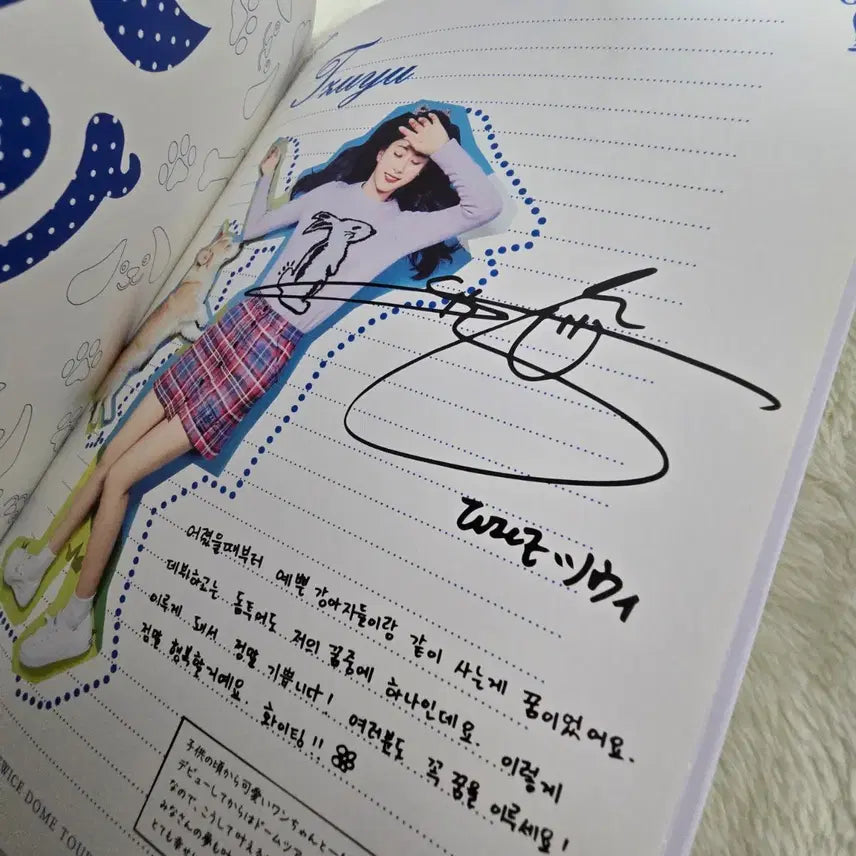 Tzuyu
TWICE 쯔위
어렸을때부터 예쁜 강아자들이랑 같이 사는게 꿈이었어요.
데뷔하고는 돔투어도 저의 꿈중에 하나인데요. 이렇게
이루게 돼서 정말 기쁩니다! 여러분도 꼭 꿈을 이루세요!
정말 행복할거예요. 화이팅!!
子供の頃から可愛いワンちゃんと一
デビューしてからはドームツア
なので、こうして叶える
みなさんの夢も
とても幸せ
TWICE DOME TOUR